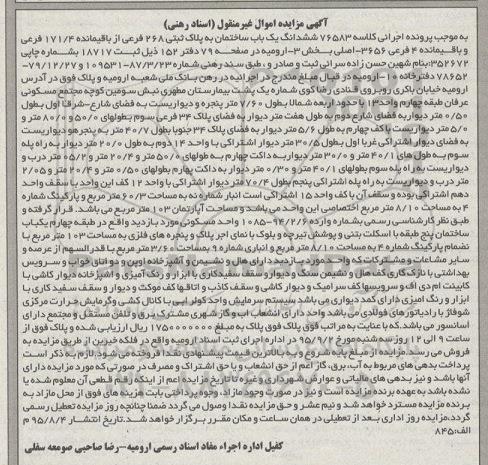 آگهی مزایده اموال غیرمنقول (اسناد رهنی)
به موجب پرونده اجرائی کلاسه ۷۶۵۸۳ ششدانگ یک باب ساختمان به پلاک ثبتی ۲۶۸ فرعی از باقیمانده ۱۷۱/۴ فرعی
و باقیمانده ۴ فرعی ۳۶۵۶-اصلی بخش ۳-ارومیه در صفحه ۷۹ دفتر ۱۵۲ ذیل ثبت ۱۸۷۱۷ بشماره چاپی
۳۵۲۶۷۲:بنام شهین حسن زاده سرائی ثبت و صادر و ، طبق سند رهنی شماره ۸۷/۳/۲۳-۱۰۹۵۳۱ و ۷۹/۱۲/۲۷-
۷۸۶۵۲ دفترخانه ۱۰-ارومیه در قبال مبلغ مندرج در اجرائیه در رهن بانک ملی شعبه ارومیه و پلاک فوق در آدرس
ارومیه خیابان باکری روبروی قنادی رضا کوی شماره یک پشت بیمارستان مطهری نبش سومین کوچه مجتمع مسکونی
عرفان طبقه چهارم واحد ۱۳ با حدود اربعه شمالا بطول ۷/۶۰ متر پنجره و دیواریست به فضای شارع-شرقا اول بطول
۰/۵۰ متر دیوار به فضای شارع دوم به طول هفت متر دیوار به فضای پلاک ۳۴ فرعی سوم بطولهای ۰/۵۰ و ۰/۸۰ متر و
۵/۰ متر دیواریست با کف چهارم به طول ۵/۶ متر دیوار به فضای پلاک ۳۴ جنوبا بطول ۷/۴۰ متر به پنجره و دیواریست
به فضای دیوار اشتراکی غربا اول بطول ۳۰/۵ متر دیوار اشتراکی با واحد ۱۴ دوم به طول ۲/۰۰ متر دیوار به راه پله
سوم به طول های ۱/۴۰ متر و ۰/۳۰ متر دیوار به داکت چهارم به طولهای ۰/۵۰ متر و ۲/۴۰ متر و ۵/۲ متر درب و
دیواریست به راه پله سوم بطولهای ۱/۴۰ متر و ۰/۳۰ متر دیوار به داکت چهارم بطولهای ۰/۵۰ متر و ۲/۴۰ متر و ۲/۰۵
متر درب و دیواریست به راه پله اشتراکی پنجم بطول ۴/۷۰ متر دیوار اشتراکی با واحد ۱۲ کف این واحد با سقف واحد
دهم اشتراکی بوده و سقف آن با کف واحد ۱۵ اشتراکی است انبار شماره نه به مساحت ۳/۶۰ متر مربع و پارکینگ شماره
۴ به مساحت ۸/۱۰ متر مربع اختصاصی این واحد می باشند و مساحت آپارتمان ۱۰۳ متر مربع می باشد. قرار گرفته و
طبق نظر کارشناسی رسمی بشماره وارده ۹۴/۲/۶-۱۰۸۵ واحد مسکونی مورد بازدید واقع در طبقه چهارم یکباب
ساختمان پنج طبقه با اسکلت بتنی و پوشش تیرچه و بلوک با نمای آجر پلاک و پنجره های فلزی به مساحت ۱۰۳ متر مربع با
نضمام پارکینگ شماره ۴ به مساحت ۸/۱۰ متر مربع و انباری شماره ۹ بمساحت ۳/۶۰ متر مربع با قدرالسهم از عرصه و
سایر مشاعات و مشترکات که واحد مورد بازدید دارای هال و نشیمن و آشپزخانه اوپن و دو اتاق خواب و سرویس
بهداشتی با نازک کاری کف هال و نشیمن سنگ و دیوار و سقف سفیدکاری با ابزار و رنگ آمیزی و آشپزخانه دیوار کاشی با
کابینت ام دی اف و سرویسها کف سرامیک و دیوار کاشی و سقف کاذب و اتاقها کف موکت و دیوار و سقف سفید کاری با
ابزار و رنگ امیزی دارای کمد دیواری می باشد سیستم سرمایش واحد کولر ابی با کانال کشی و گرمایش حرارت مرکزی
شوفاژ با رادیاتورهای فولادی می باشد واحد دارای انشعاب اب و گاز شهری مشترک برق و تلفن مستقل و مجتمع دارای
آسانسور می باشد.که با عنایت به مراتب فوق پلاک فوق پلاک به مبلغ ۱۷۵۰۰۰۰۰۰۰ ریال ارزیابی شده و پلاک فوق از
ساعت ۹ الی ۱۲ روز سه شنبه مورخ ۹۵/۹/۲ در اداره اجرای ثبت اسناد ارومیه واقع در فلکه خیرین از طریق مزایده به
فروش می رسد. مزایده از مبلغ پایه شروع و به بالاترین قیمت پیشنهادی نقدا فروخته می شود.لازم به ذکر است
پرداخت بدهی های مربوط به آب، برق، گاز اعم از حق انشعاب و یا حق اشتراک و مصرف در صورتی که مورد مزایده دارای
آنها باشد و نیز بدهی های مالیاتی و عوارض شهرداری و غیره تا تاریخ مزایده اعم از اینکه رقم قطعی آن معلوم شده یا
نشده باشد به عهده برنده مزایده است و نیز در صورت وجود مازاد، وجوه پرداختی بابت هزینه های فوق از محل مازاد به
برنده مزایده مسترد خواهد شد و نیم عشر و حق مزایده نقدا وصول می گردد ضمنا چنانچه روز مزایده تعطیل رسمی
گردد،مزایده روز اداری بعد از تعطیلی در همان ساعت و مکان مقرر برگزار خواهد شد.تاریخ انتشار ۹۵/۸/۴ م
الف:۸۴۵
کفیل اداره اجراء مفاد اسناد رسمی ارومیه-رضا صاحبی صومعه سفلی